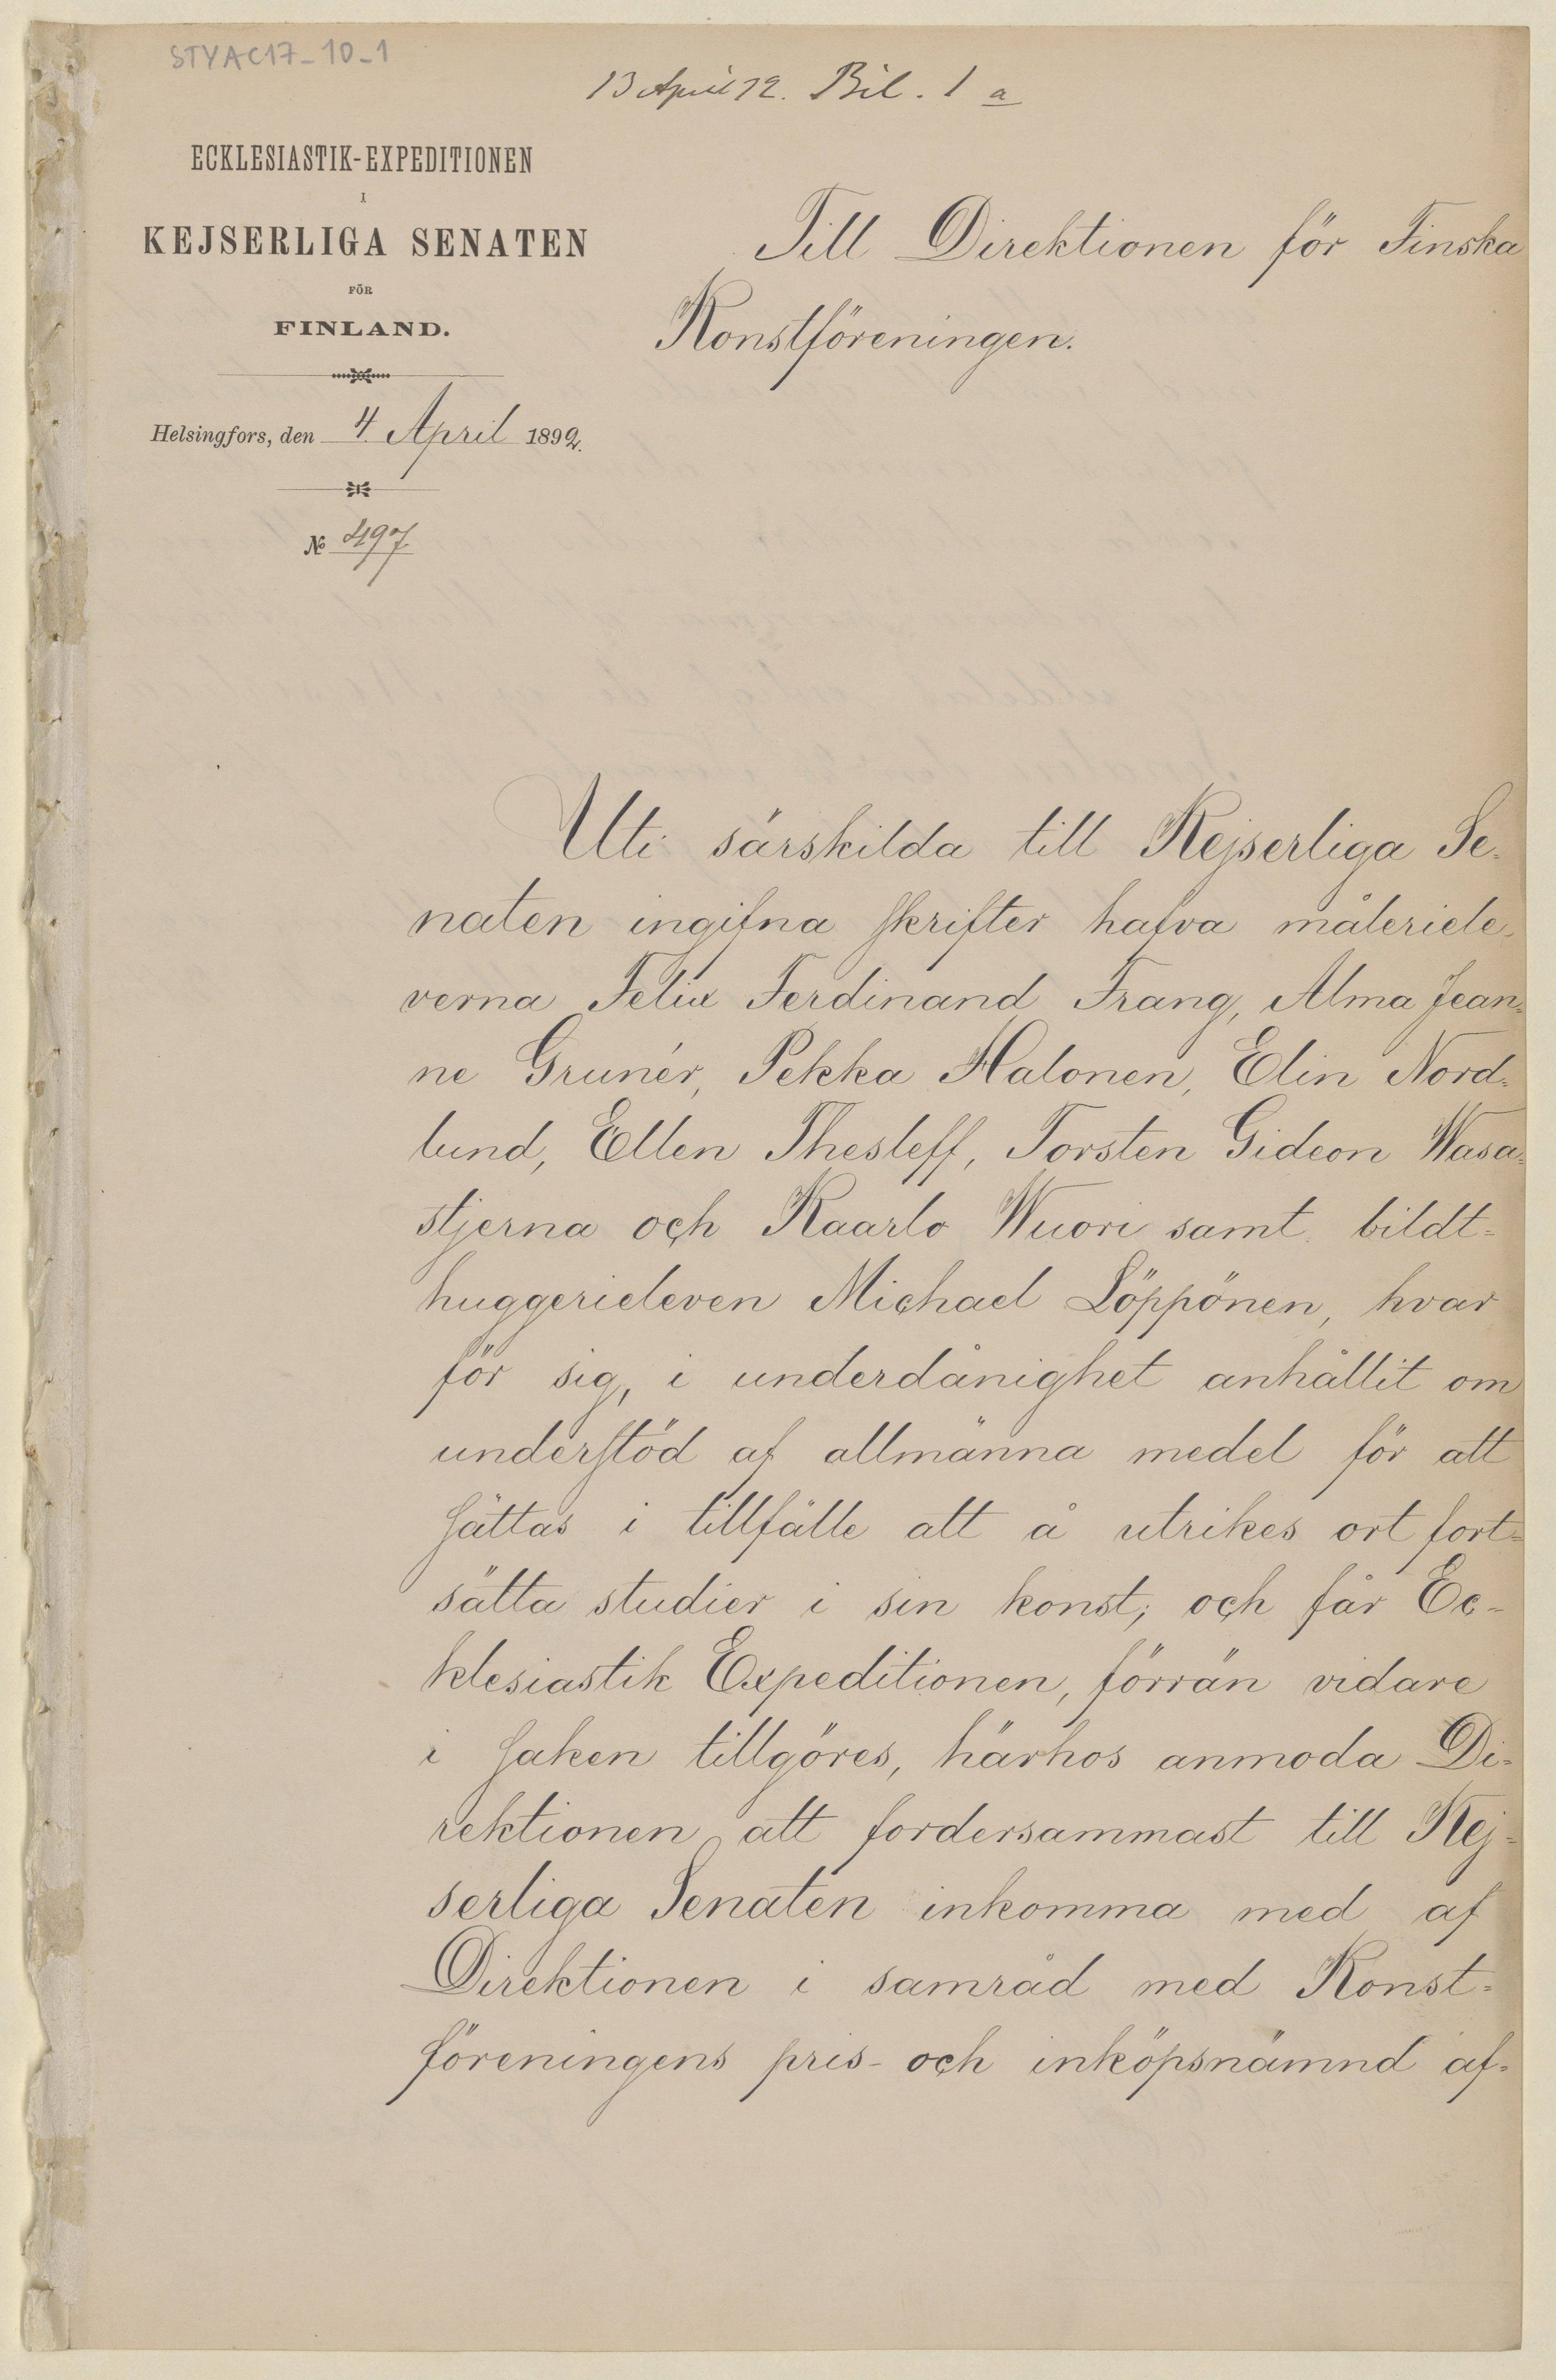 STYAC17-10-1
13 April 92. Bil. 1 a
ECKLESIASTIK-EXPEDITIONEN
I
KEJSERLIGA SENATEN
FÖR
FINLAND.
Helsingfors, den 4. April 1892.
№ 497
Till Direktionen för Finska
Konstföreningen.
Uti särskilda till Kejserliga Se-
naten ingifna skrifter hafva måleriele-
verna Felix Ferdinand Frang, Alma Jean-
ne Grunér, Pekka Halonen, Elin Nord-
lund, Ellen Thesleff, Torsten Gideon Wasa-
stjerna och Kaarlo Wuori samt bildt-
huggerieleven Michael Löppönen, hvar
för sig, i underdånighet anhållit om
understöd af allmänna medel för att
sättas i tillfälle att å utrikes ort fort-
sätta studier i sin konst; och får Ec-
klesiastik Expeditionen, förrän vidare
i saken tillgöres, härhos anmoda Di-
rektionen att fordersammast till Kej-
serliga Senaten inkomma med af
Direktionen i samråd med Konst-
föreningens pris- och inköpsnämnd af-